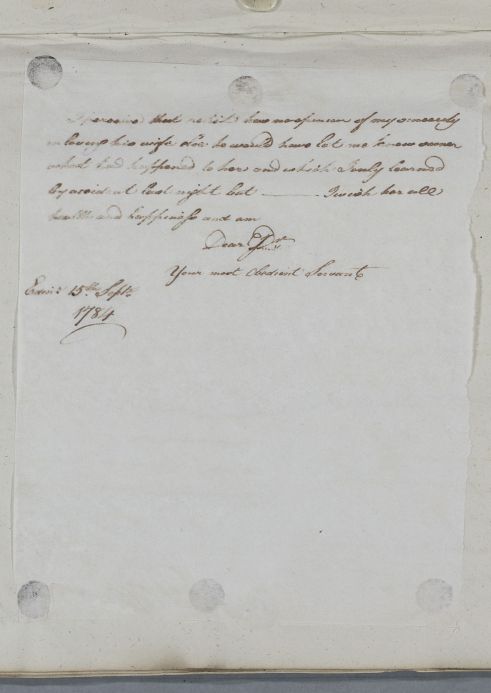 I perceive that has no opinion of my sincerity
in loving his wife else he would have let me know sooner
what had happened to her and which I only learned
by accident last night but ——— I wish her all
health and happiness and am
Dear Dr
Your most Obedient Servant
Edinr 15th Septr
1784